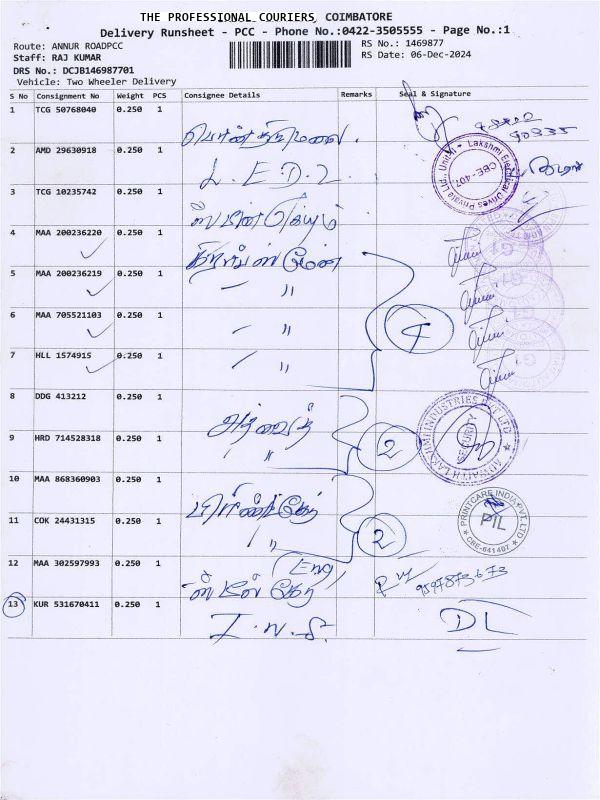 THE PROFESSIONAL COURIERS, COIMBATORE
Delivery Runsheet - PCC - Phone No.:0422-3505555 - Page No.:1
Route: ANNUR ROADPCC RS No.: 1469877
Staff: RAJ KUMAR RS Date: 06-Dec-2024
DRS No.: DCJB146987701
Vehicle: Two Wheeler Delivery
S No Consignment No Weight PCS Consignee Details Remarks Seal & Signature
1 TCG 50768040 0.250 1
2 AMD 29630918 0.250 1
L.E.D.2
3 TCG 10235742 0.250 1
4 MAA 200236220 0.250 1
5 MAA 200236219 0.250 1
" 4
6 MAA 705521103 0.250 1
"
7 HLL 1574915 0.250 1
"
8 DDG 413212 0.250 1
9 HRD 714528318 0.250 1
" 2
10 MAA 868360903 0.250 1
11 COK 24431315 0.250 1
" 2
PRINTCARE INDIA PVT. LTD
PIL
CBE-641407
12 MAA 302597993 0.250 1
9597873673
13 KUR 531670411 0.250 1
I.N.S. DL
Lakshmi Electrical Drives Private Ltd., Unit-I
CBE-407
LAKSHMI INDUSTRIES PVT LTD
SECURITY